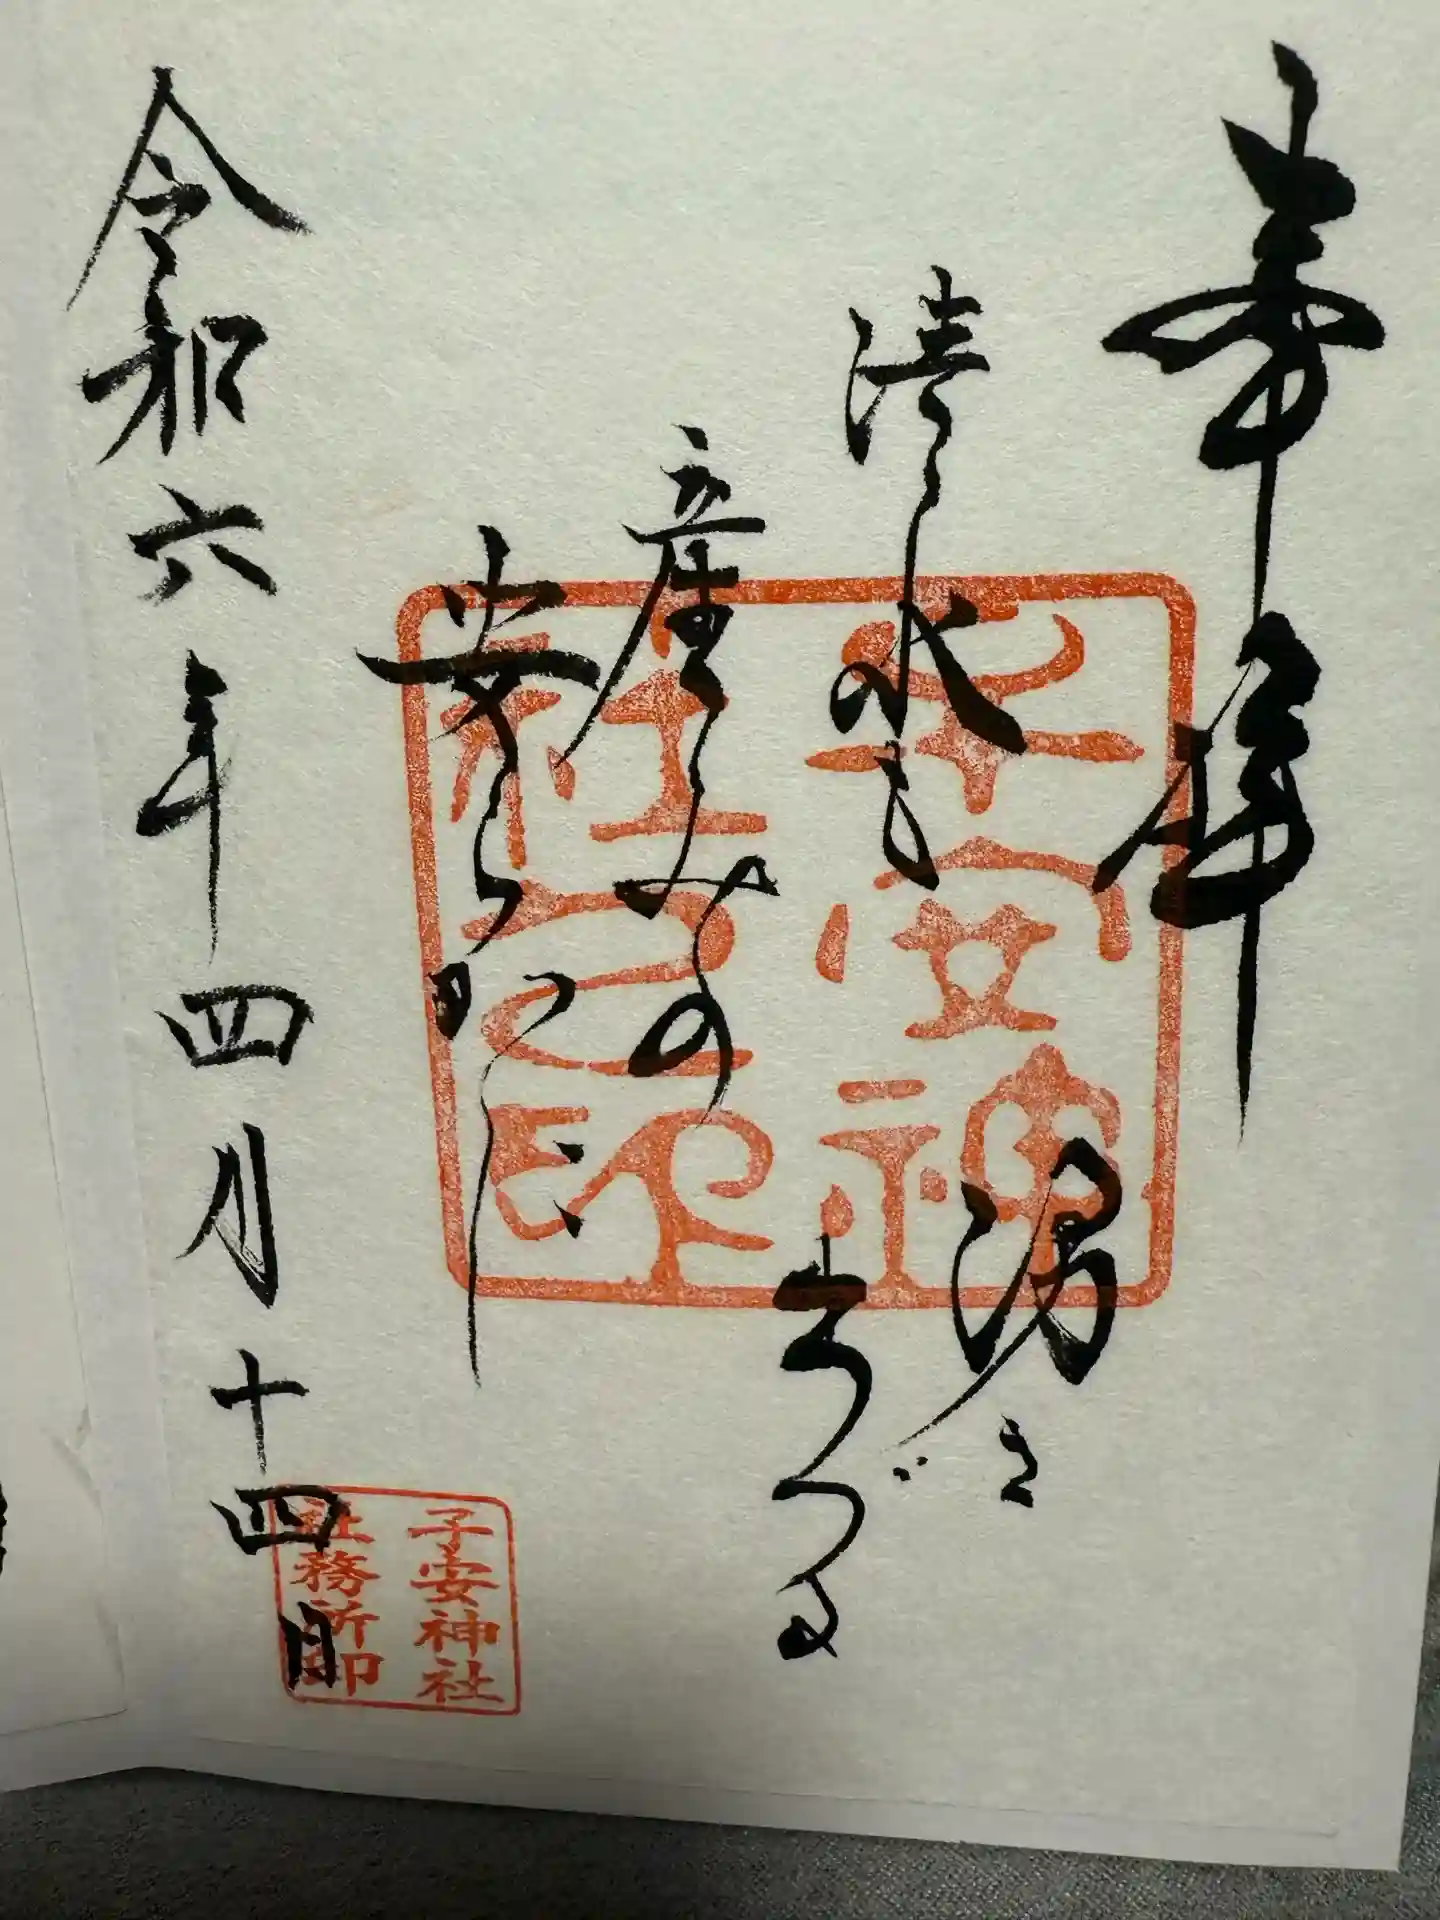 奉拝
清水も
湧き
出づる
産みの
安ら
令和六年四月十四日
子安神
社之印
子安神社
社務所印